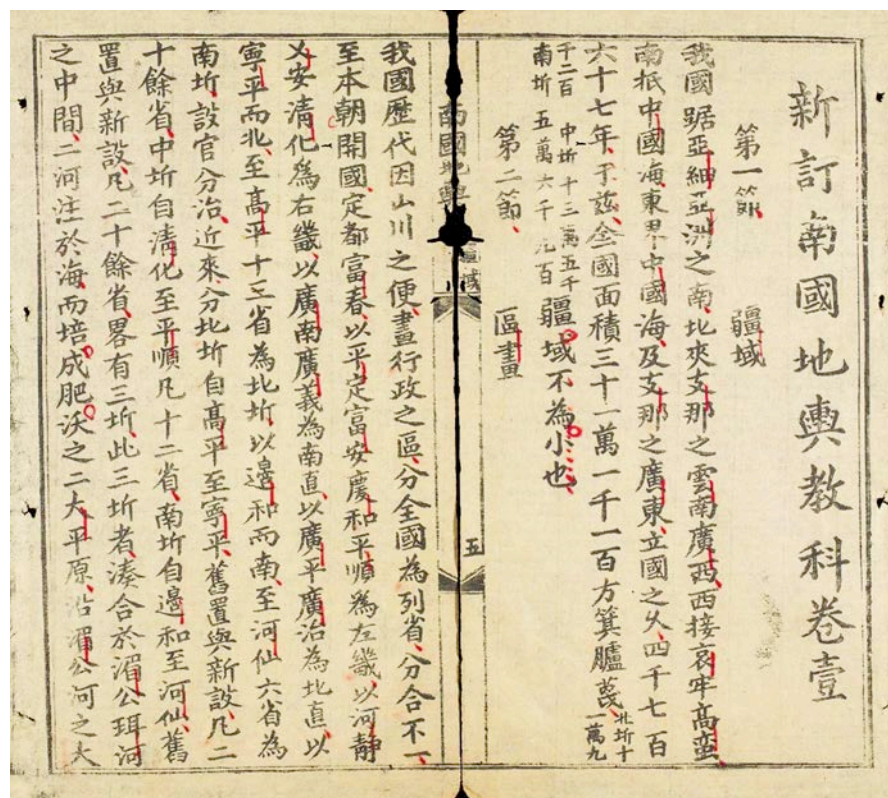 新訂南國地輿教科卷壹
第一節、 疆域
我國踞亞細亞洲之南、北夾支那之雲南廣西、西接哀牢高蛮、
南抵中國海、東界中國海、及支那之廣東、立國之久、四千七百
六十七年、于兹、全國面積三十一萬一千一百方箕臚蓑、北圻十一萬九
千二百 中圻十三萬五千
南圻 五萬六千九百 疆域不為小也、
第二節、 區畫
南國地輿 疆域 五
我國歷代因山川之便、畫行政之區、分全國為列省、分合不一、
至本朝開國、定都富春、以平定富安慶和平順為左畿、以河靜
乂安清化為右畿、以廣南廣義為南直、以廣平廣治為北直、以
寧平而北、至高平十五省為北圻、以邊和而南、至河仙六省為
南圻、設官分治、近來、分北圻自高平至寧平、舊置與新設、凡二
十餘省、中圻自清化至平順凡十二省、南圻自邊和至河仙、舊
置與新設、凡二十餘省、畧有三圻、此三圻者、湊合於湄公珥河
之中間、二河注於海、而培成肥沃之二大平原、沿湄公河之大